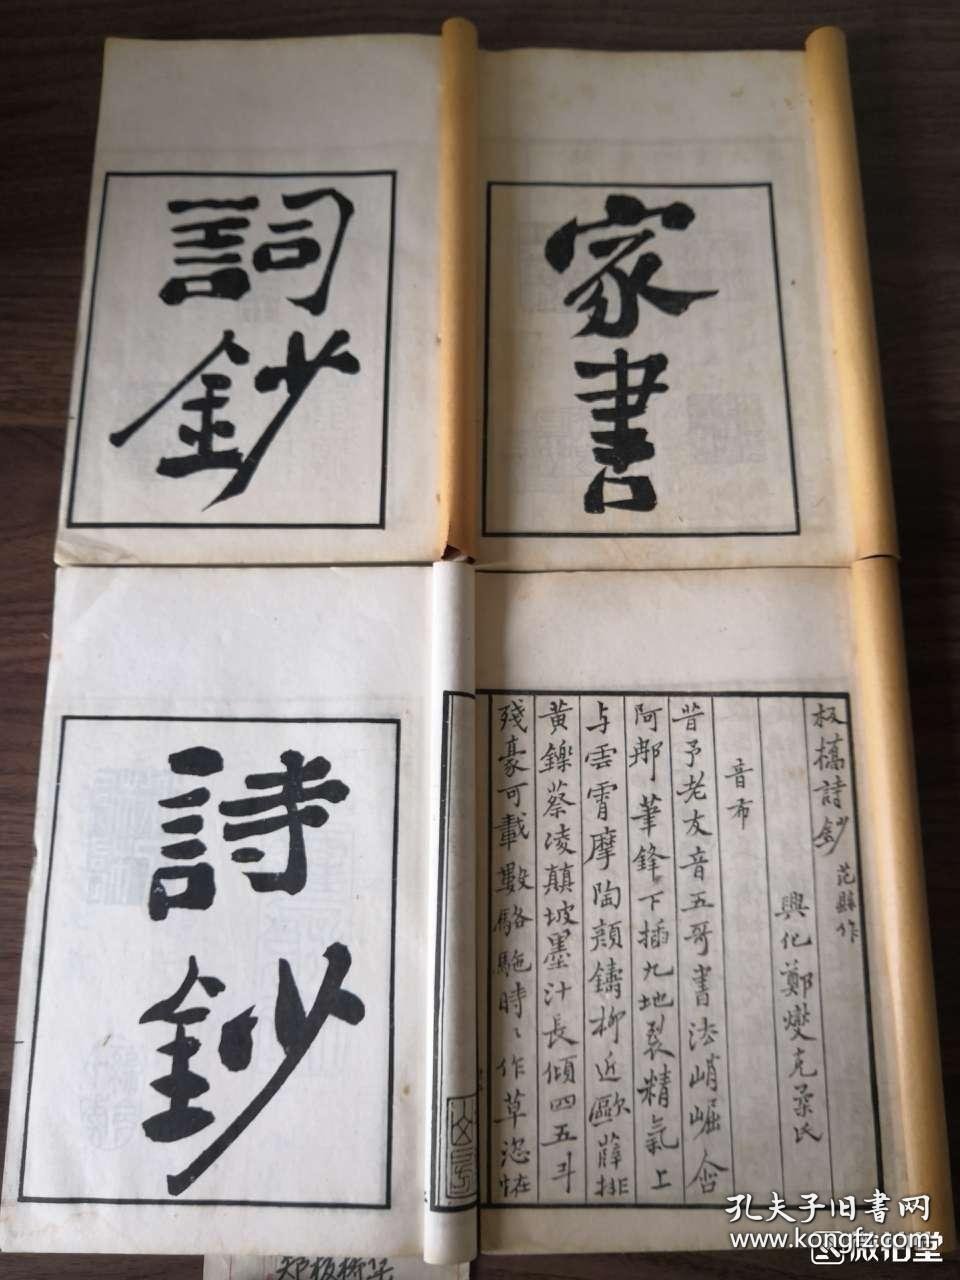 詞鈔
家書
詩鈔
板橋詩鈔 范縣作
興化鄭燮克柔氏
音布
昔予老友音五哥書法峭崛含
阿那筆鋒下插九地裂精氣上
与雲霄摩陶顔鑄柳近歐薛排
黄鑠蔡凌顛坡墨汁長傾四五斗
殘豪可載數駱駞時〻作草恣怪
孔夫子旧書网
www.kongfz.com
微拍堂